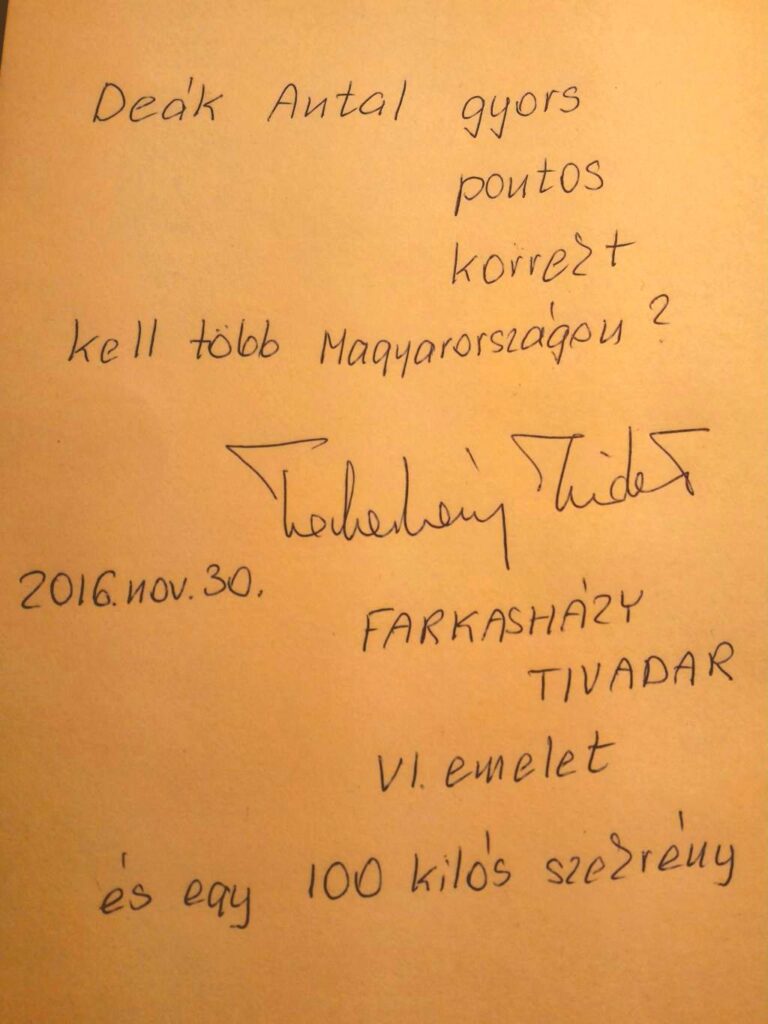 Deák Antal gyors
pontos
korrekt
kell több Magyarországon?
Farkasházy Tivadar
2016. nov. 30.
FARKASHÁZY
TIVADAR
VI. emelet
és egy 100 kilós szekrény